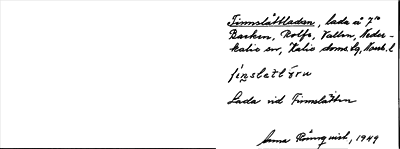 Finnslåttladan, lada å 7¹⁰
Backen, Rolfs, Vallen, Neder-
Kalix sn, Kalix doms.sg, Norrb. l
Lada vid Finnslåtten
Anna Rönnqvist, 1949